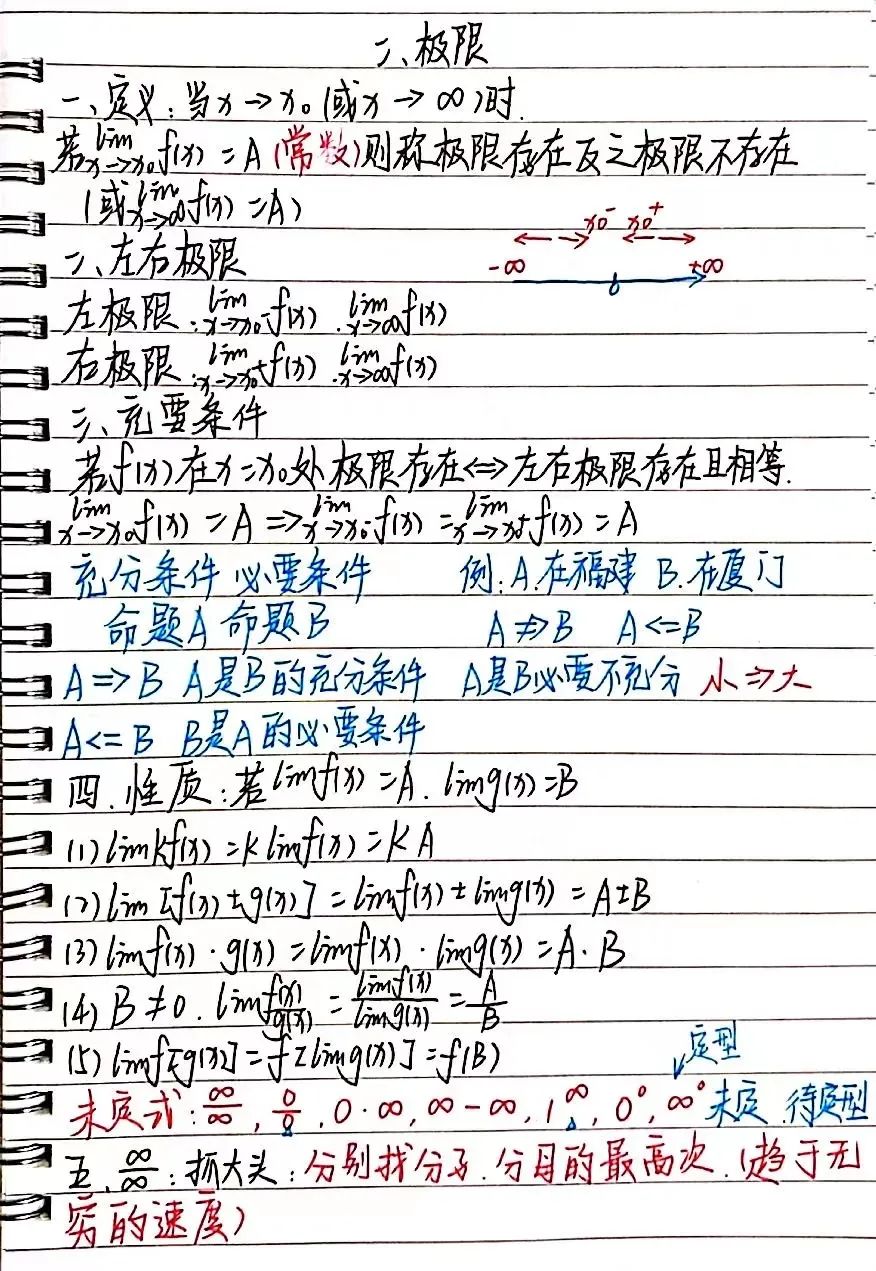 二、极限
一、定义:当x→x₀(或x→∞)时.
若lim x→x₀ f(x)=A(常数)则称极限存在反之极限不存在
(或lim x→∞ f(x)=A)
x₀⁻ x₀⁺
二、左右极限
-∞ 0 +∞
左极限:lim x→x₀⁻ f(x).lim x→∞ f(x)
右极限:lim x→x₀⁺ f(x).lim x→∞ f(x)
三、充要条件
若f(x)在x=x₀处极限存在<=>左右极限存在且相等.
lim x→x₀ f(x)=A=>lim x→x₀⁻ f(x)=lim x→x₀⁺ f(x)=A
充分条件 必要条件 例:A.在福建 B.在厦门
命题A 命题B A≠>B A<=B
A=>B A是B的充分条件 A是B必要不充分 小=>大
A<=B B是A的必要条件
四.性质:若limf(x)=A.limg(x)=B
(1)limkf(x)=klimf(x)=kA
(2)lim[f(x)±g(x)]=limf(x)±limg(x)=A±B
(3)limf(x)·g(x)=limf(x)·limg(x)=A·B
(4)B≠0.lim f(x)/g(x)=limf(x)/limg(x)=A/B
(5)limf[g(x)]=f[limg(x)]=f(B)
定型
未定式:∞/∞,0/0,0·∞,∞-∞,1^∞,0⁰,∞⁰未定.待定型
五、∞/∞:抓大头:分别找分子.分母的最高次.(趋于无
穷的速度)